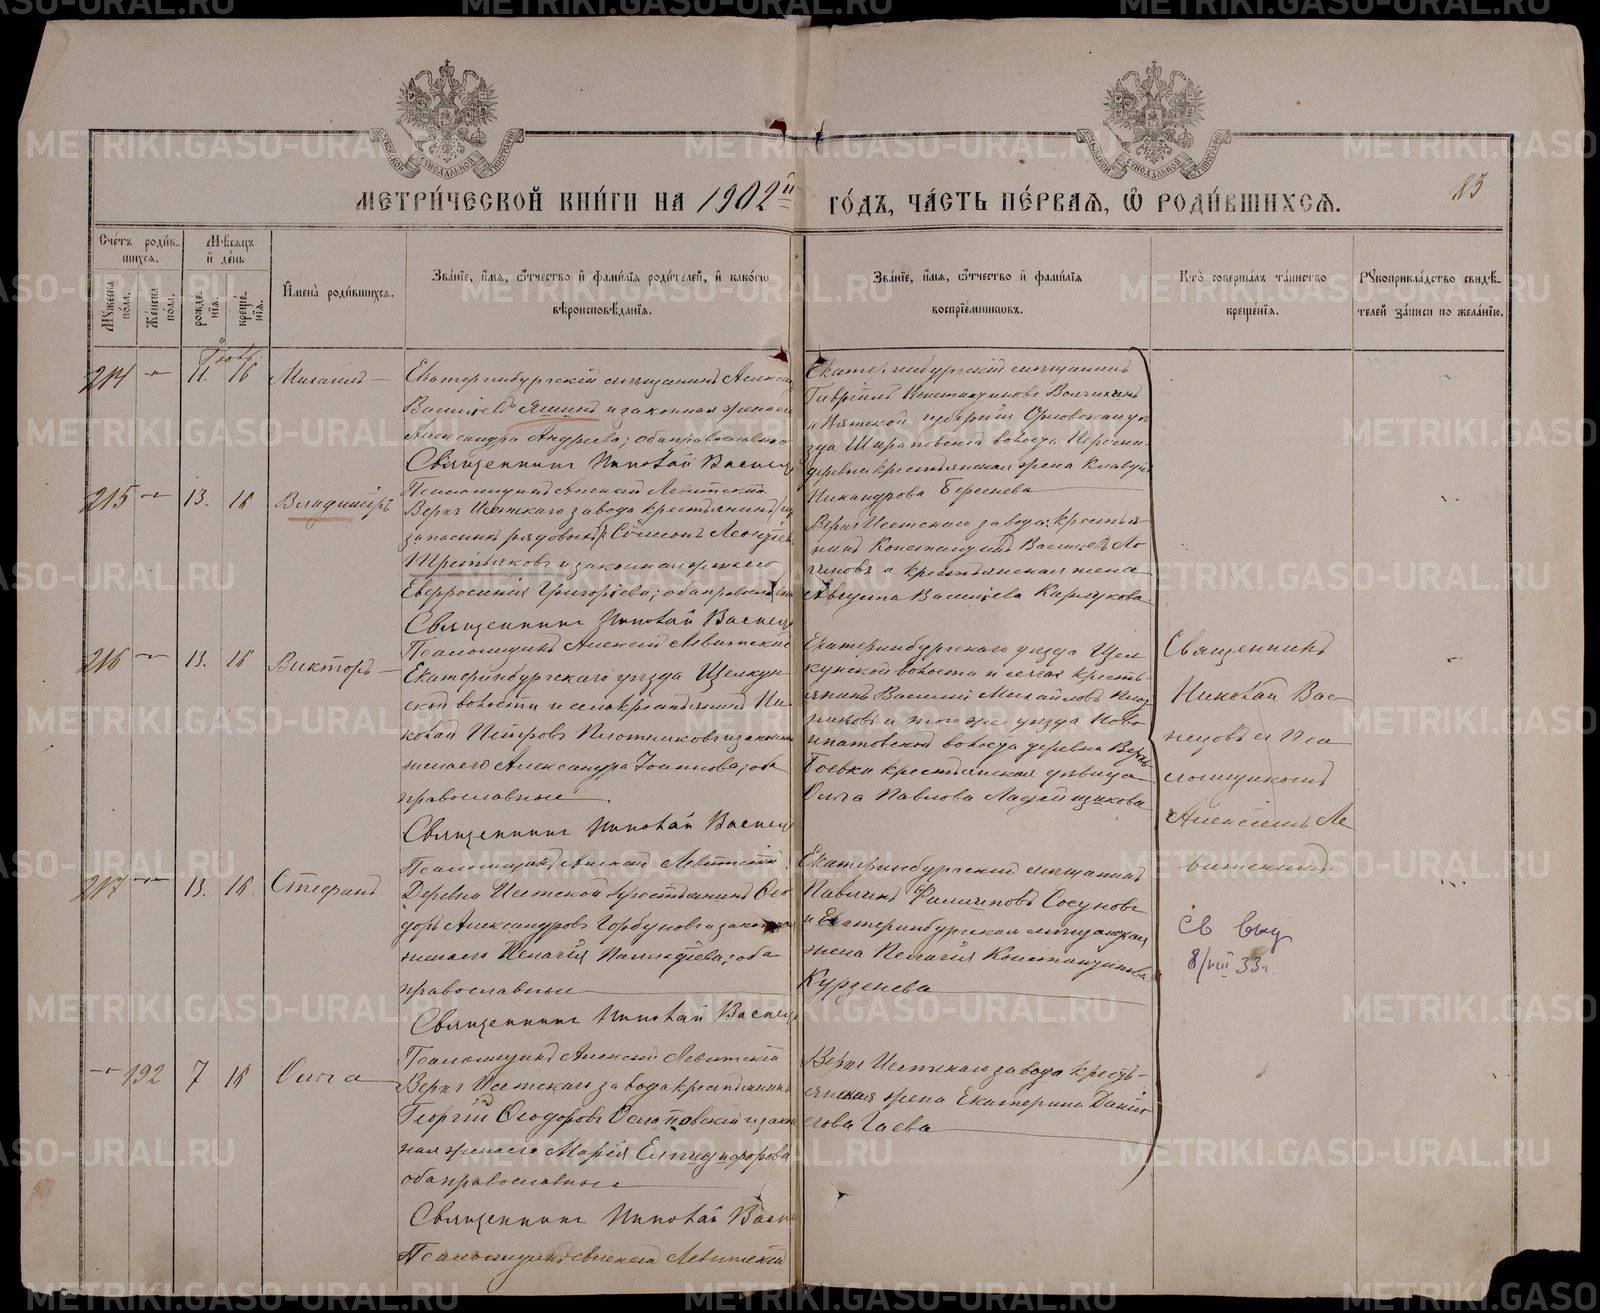 METRIKI.GASO-URAL.RU
МЕТРИ́ЧЕСКОЙ КНИ́ГИ НА 1902й ГО́ДЪ, ЧА́СТЬ ПЕ́РВАЯ, Ѡ РОДИ́ВШИХСЯ.
83
Сче́тъ роди́в-
шихся.
Му́жеска по́ла.
Же́нска по́ла.
Мѣ́сяцъ
и де́нь
рожде́нія.
креще́нія.
Имена̀ роди́вшихся.
Зва́ніе, и́мя, ѻ́тчество и фами́лія роди́телей, и како́гѡ
вѣроисповѣ́данія.
Зва́ніе, и́мя, ѻ́тчество и фами́лія
воспріе́мниковъ.
Кто̀ соверша́лъ та́инство
креще́нія.
Рꙋкоприкла́дство свидѣ́-
телей за́писи по жела́нію.
214 11. 16 Михаилъ
Екатеринбургскій мещанинъ Алексѣй
Васильевъ Яшинъ и законная жена его
Александра Андреева; оба православные
Священникъ Николай Васнецовъ
Псаломщикъ Алексій Левитскій
Екатеринбургскій мещанинъ
Гавріилъ Константиновъ
и Вятской губерніи Орловскаго уѣ
зда
деревни крестьянская жена Клавдія
Никандрова Береснева
215 13. 16 Владиміръ
Верхъ Исетскаго завода крестьянинъ
запасный рядовый Симеонъ Леонтіевъ
Третьяковъ и законная жена его
Евфросинія Григорьева; оба православные
Священникъ Николай Васнецовъ
Псаломщикъ Алексій Левитскій
Верхъ Исетскаго завода: крестья-
нинъ Константинъ Васильевъ Ло-
гиновъ и крестьянская жена
Августа Васильева Карлукова.
216 13. 16 Викторъ
Екатеринбургскаго уѣзда Щелкун-
ской волости и села крестьянинъ Ни-
колай Петровъ Плотниковъ и законная
жена его Александра Іоаннова; оба
православные
Священникъ Николай Васнецовъ
Псаломщикъ Алексій Левитскій.
Екатеринбургскаго уѣзда Щел
кунской волости и села кресть-
янинъ Василій Михайловъ Плот
никовъ и того же уѣзда Ново-
ипатовской волости деревни Верхъ
Боевки крестьянская дѣвица
Ольга Павлова Ладейщикова
Священникъ
Николай Вас-
нецовъ съ Пса-
ломщикомъ
Алексіемъ Ле-
витскимъ.
217 13. 16. Стефанъ
Деревни Исетской крестьянинъ Ѳео-
доръ Александровъ Горбуновъ и законная
жена его Пелагія; оба
православные
Священникъ Николай Васнецовъ
Псаломщикъ Алексій Левитскій
Екатеринбургскій мещанинъ
Павлинъ Филиповъ Сосуновъ
и Екатеринбургская мещанская
жена Пелагія Константинова
Курзенева
св выд
8/VIII 33 г.
192 7 16 Ольга
Верхъ Исетскаго завода крестьянинъ
Георгій Ѳеодоровъ и закон
ная жена его Марія Елпидифорова
оба православные
Священникъ Николай Васнецовъ
Псаломщикъ Алексій Левитскій
Верхъ Исетскаго завода кресть-
янская жена Екатерина Дании-
лова Гаева